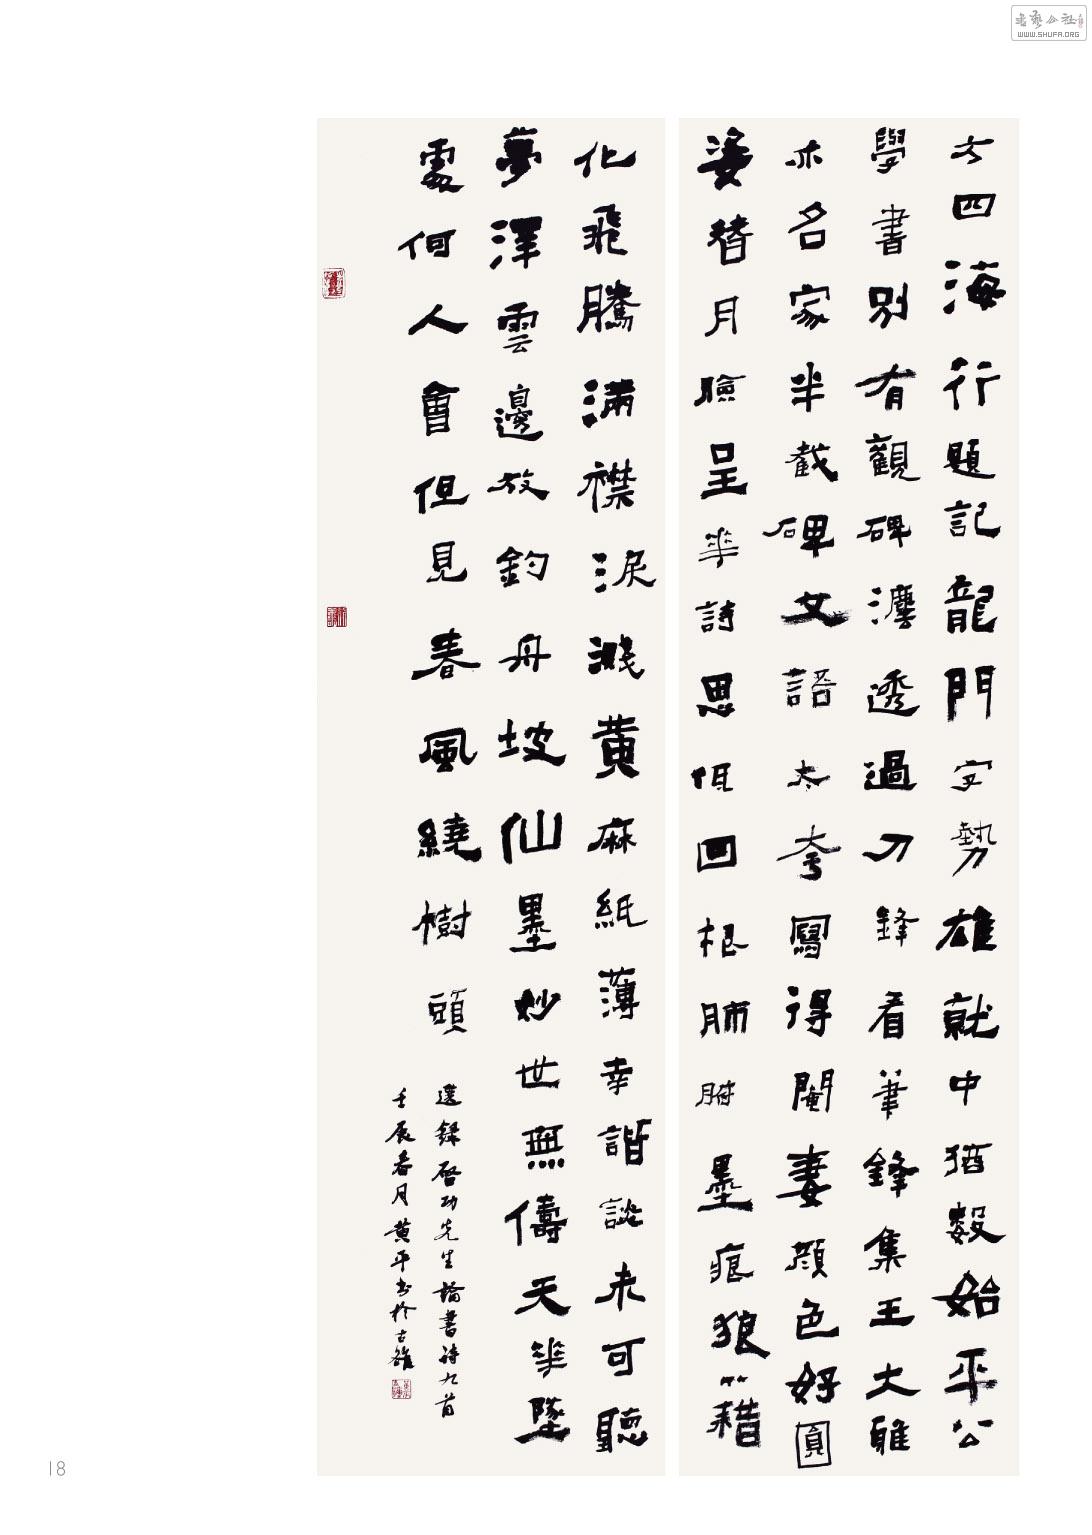 方四海行題記龍門字勢雄就中猶數始平公
學書別有觀碑灋透過刀鋒看筆鋒集王大雅
亦名家半截碑文語太夸寫得閹妻顏色好圓
姿替月臉呈華詩思低回根肺腑墨痕狼藉
化飛騰滿襟淚濺黃麻紙薄幸諧談未可聽
夢澤雲邊放釣舟坡仙墨妙世無儔天華墜
處何人會但見春風繞樹頭
選錄啓功先生論書詩九首
壬辰春月黃平書於古雒
18
WWW.SHUFA.ORG